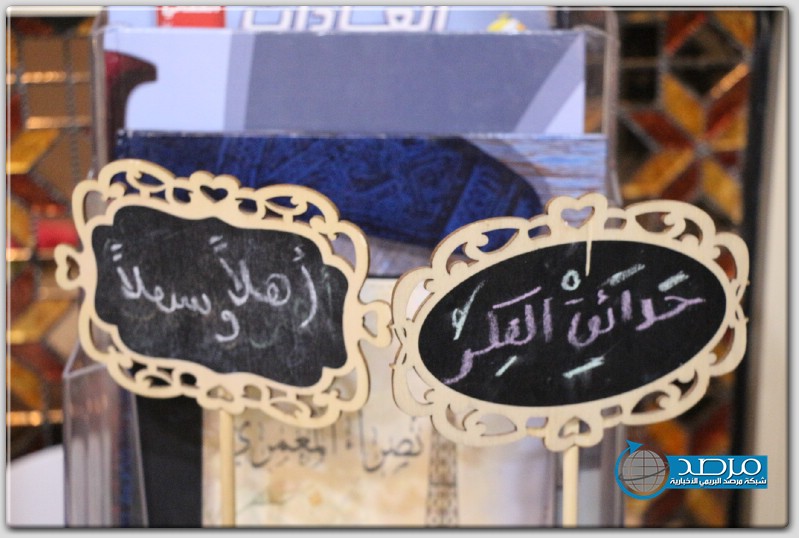 العادات
أهلاً وسهلاً
حدائق الفكر
نصراء المعمري
مرصد
شبكة مرصد البريمي الاخبارية